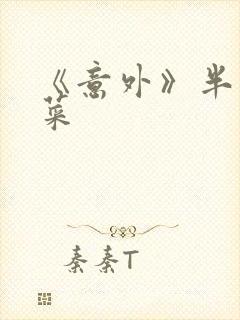 《意外》半
菜
秦秦T